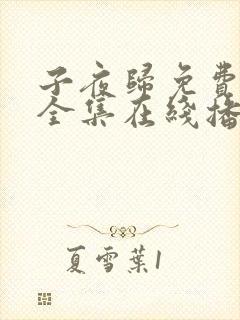 子夜歸免費
全集在綫播
夏雪葉1